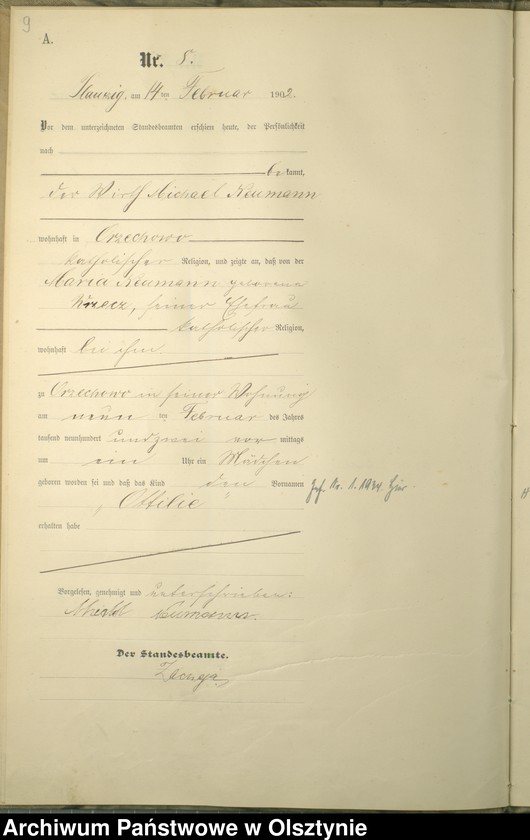 9
A.
Nr. 5.
am 14 ten Februar 1902.
Vor dem unterzeichneten Standesbeamten erschien heute, der Persönlichkeit
nach
bekannt,
der Wirth Michael Neumann
wohnhaft in Orzechowo
katholischer Religion, und zeigte an, daß von der
Maria Neumann geborene
seiner Ehefrau
katholischer Religion,
wohnhaft bei ihm
zu Orzechowo in seiner Wohnung
am neun ten Februar des Jahres
tausend neunhundert und zwei vor mittags
um ein Uhr ein Mädchen
geboren worden sei und daß das Kind den Vornamen
„Ottilie“
erhalten habe
Vorgelesen, genehmigt und unterschrieben:
Neumann.
Der Standesbeamte.
No. 1. 1934
H
Archiwum Państwowe w Olsztynie